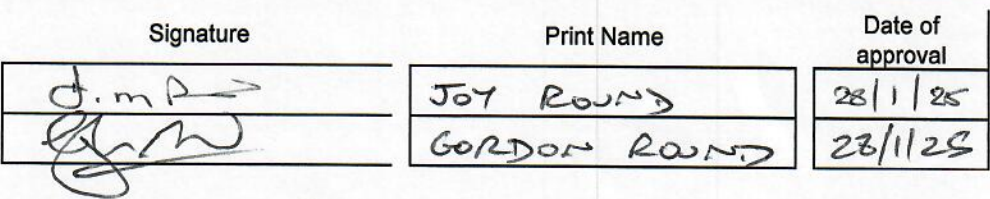 Signature Print Name Date of approval
J.M R JOY ROUND 28/1/25
GORDON ROUND 28/1/25